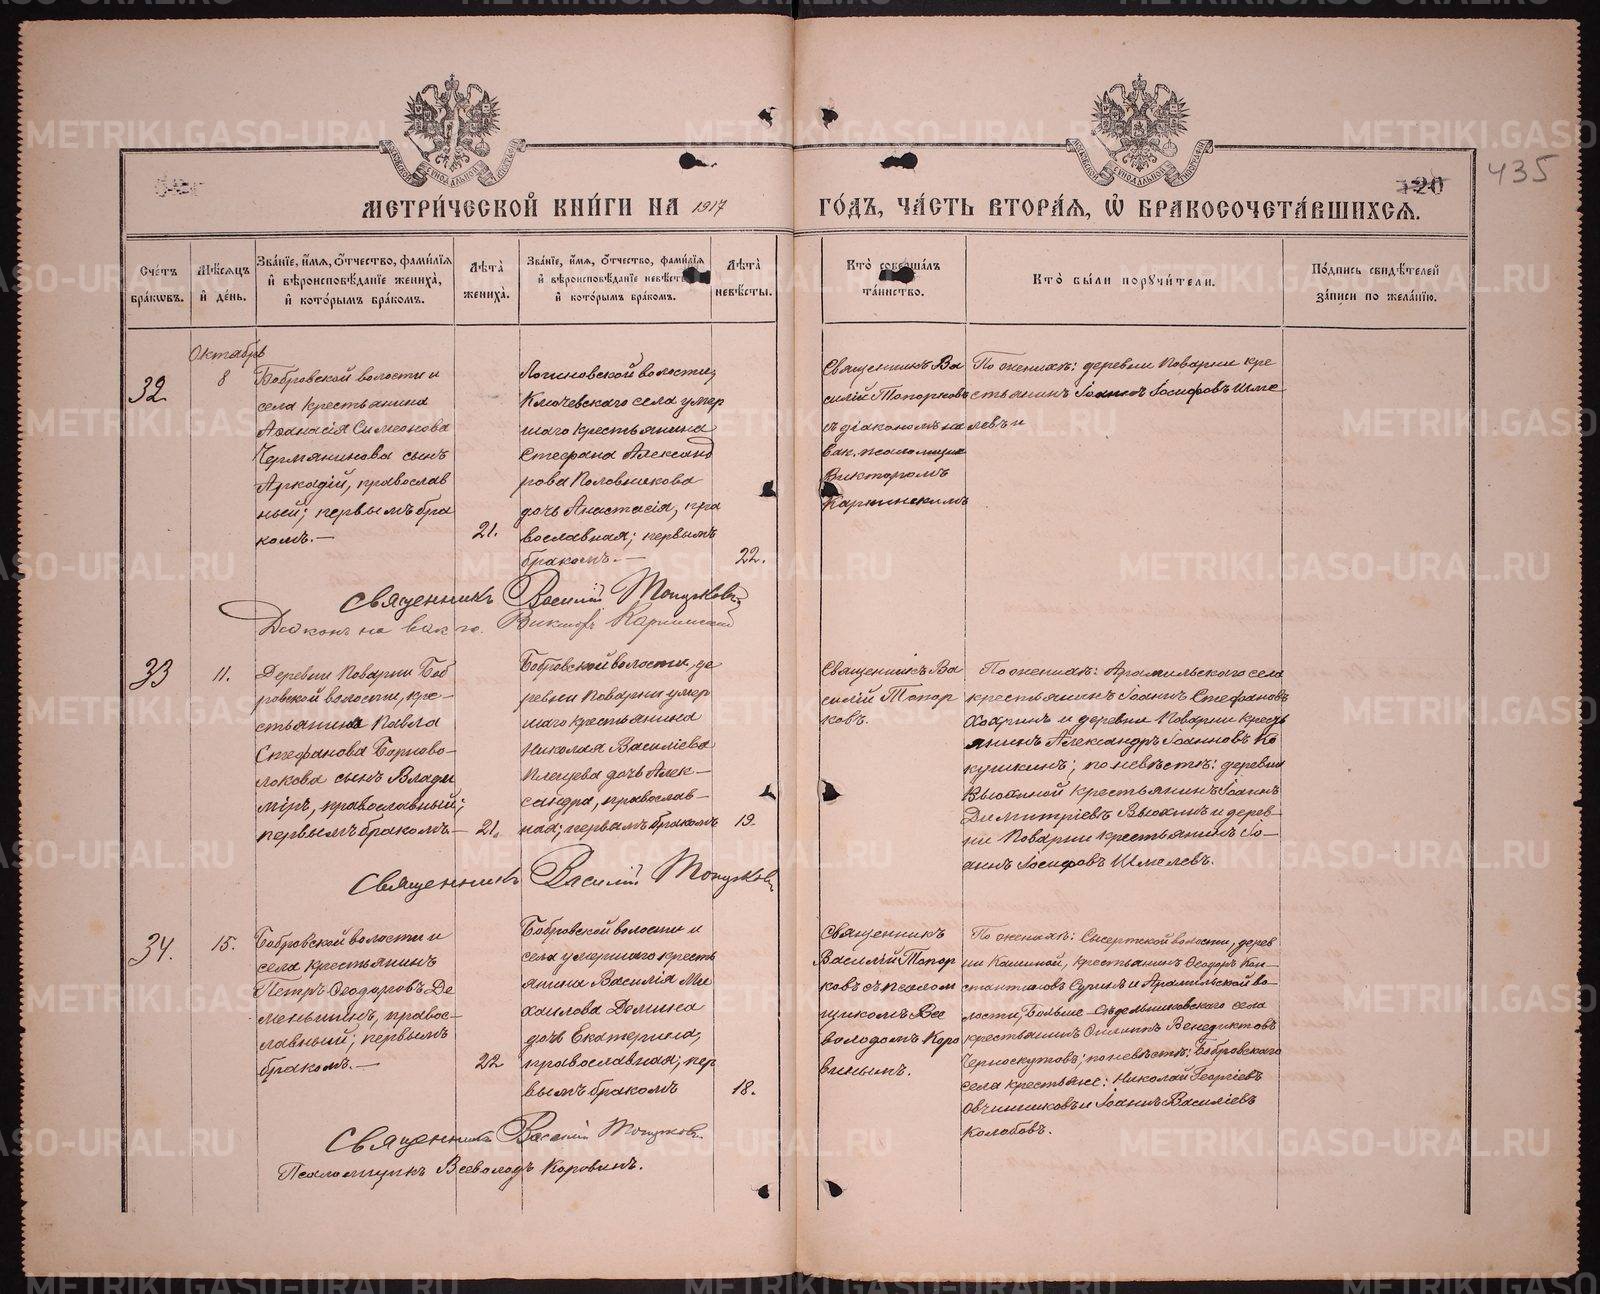 МЕТРИЧЕСКОЙ КНИГИ НА 1917 ГОДЪ, ЧАСТЬ ВТОРАЯ, Ѡ БРАКОСОЧЕТАВШИХСЯ.
120
435
Счетъ браковъ.
Мѣсяцъ и день.
Званіе, имя, отчество, фамилія
и вѣроисповѣданіе жениха,
и которымъ бракомъ.
Лѣта
жениха.
Званіе, имя, отчество, фамилія
и вѣроисповѣданіе невѣсты
и которымъ бракомъ.
Лѣта
невѣсты.
Кто совершалъ
таинство.
Кто были поручители.
Подпись свидѣтелей
записи по желанію.
32
Октябрь
8
Бобровской волости и
села крестьянина
Аѳанасія Симеонова
Чермянинова сынъ
Аркадій, православ
ный; первымъ бра
комъ.—
21.
Логиновской волости,
Ключевскаго села умер
шаго крестьянина
Стефана Александ
рова Половникова
дочь Анастасія, пра
вославная; первымъ
бракомъ.—
22.
Священникъ Ва
силій Топорковъ
съ діакономъ на
вак. псаломщик
Викторомъ
Карпинскимъ
По женихѣ: деревни Поварни кре
стьянинъ Іоаннъ Іосифовъ Шме
левъ и
Священникъ Василій Топорковъ
Діаконъ на вак. Викторъ Карпинский
33
11.
Деревни Поварни Боб
ровской волости, кре-
стьянина Павла
Стефанова Борново-
локова сынъ Влади
міръ, православный;
первымъ бракомъ—
21.
Бобровской волости, де
ревни Поварни умер
шаго крестьянина
Николая Василіева
Плещева дочь Алек-
сандра, православ-
ная; первымъ бракомъ
19.
Священникъ Ва
силій Топор
ковъ.
По женихѣ: Арамильскаго села
крестьянинъ Іоаннъ Стефановъ
и деревни Поварни кресть
янинъ Александръ Іоанновъ Ко
кушкинъ; по невѣстѣ: деревни
Вьюхиной крестьянинъ Іоаннъ
Димитріевъ Вьюхинъ и дерев-
ни Поварни крестьянинъ Іо-
аннъ Іосифовъ Шмелевъ.
Священникъ Василій Топорковъ
34.
15.
Бобровской волости и
села крестьянинъ
Петръ Ѳеодоровъ Де
меньшинъ, правос-
лавный; первымъ
бракомъ.—
22
Бобровской волости и
села умершаго кресть
янина Василія Ми
хаилова Долинина
дочь Екатерина,
православная; пер
вымъ бракомъ
18.
Священникъ
Василій Топор
ковъ съ псалом
щикомъ Все
володомъ Коро
винымъ.
По женихѣ: Сысертской волости, дерев
ни Кашиной, крестьянинъ Ѳеодоръ Кон-
стантиновъ Суринъ и Арамильской во-
лости, Больше-Седельниковскаго села
крестьянинъ Филиппъ Венедиктовъ
Черноскутовъ; по невѣстѣ: Бобровскаго
села крестьяне: Николай Георгіевъ
Овчинниковъ и Іоаннъ Василіевъ
Колобовъ.
Священникъ Василій Топорковъ
Псаломщикъ Всеволодъ Коровинъ.
METRIKI.GASO-URAL.RU